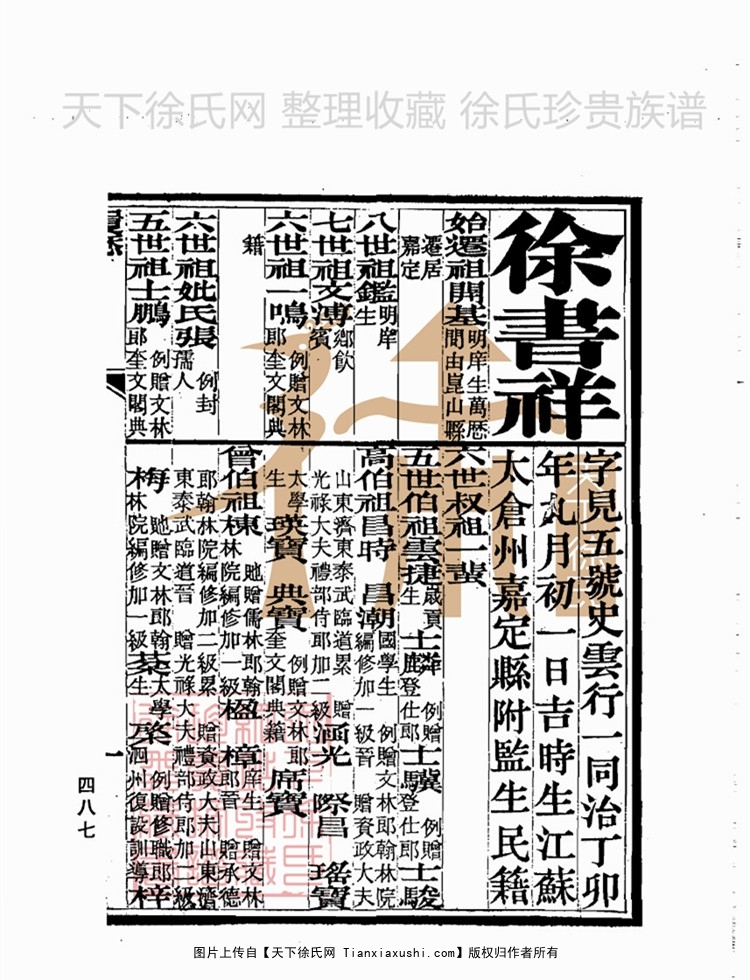 天下徐氏网 整理收藏 徐氏珍贵族谱
徐書祥
字見五號史雲行一同治丁卯
年九月初一日吉時生江蘇
太倉州嘉定縣附監生民籍
始遷祖開基明庠生萬歷
間由崑山縣
遷居
嘉定
八世祖鑑明庠
生
七世祖文溥鄉飲
賓
六世祖一鳴例贈文林
郎奎文閣典
籍
六世祖妣氏張例封
孺人
五世祖士鵬例贈文林
郎奎文閣典
六世叔祖一蜚
五世伯祖雲捷歲貢
生士麟例贈
登仕郎士驥例贈
登仕郎士駿
高伯祖昌時 昌潮國學生 例贈文林郎翰林院
編修加一級晉 贈資政大夫
山東濟東泰武臨道累 贈
光祿大夫禮部侍郎加二級涵光 際昌 瑤寶
太學
生瑛寶 典寶例贈文林郎
奎文閣典籍席寶
曾伯祖棟貤贈儒林郎翰
林院編修加一級楹 樟庠生 贈文林
郎晉 贈承德
郎翰林院編修加二級累 贈資政大夫山東濟
東泰武臨道晉 贈光祿大夫禮部侍郎加二級
梅貤贈文林郎翰
林院編修加一級棻太學
生 榮例贈修職郎
泗州復設訓導梓
一
四八七
图片上传自【天下徐氏网 Tianxiaxushi.com】版权归作者所有